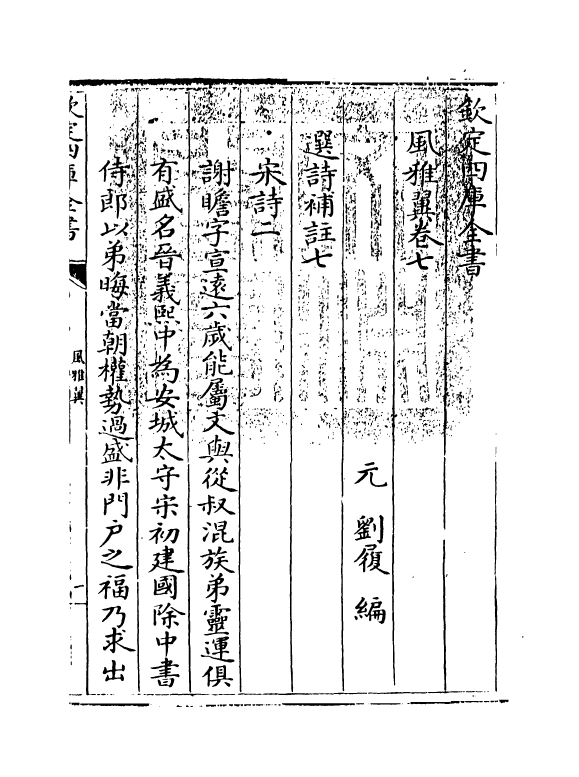 欽定四庫全書
風雅翼卷七
元　劉履　編
選詩補註七
宋詩二
謝瞻字宣遠六歲能屬文與從叔混族弟靈運俱
有盛名晉義熙中為安城太守宋初建國除中書
侍郎以弟晦當朝權勢過盛非門户之福乃求出
欽定四庫全書
風雅翼